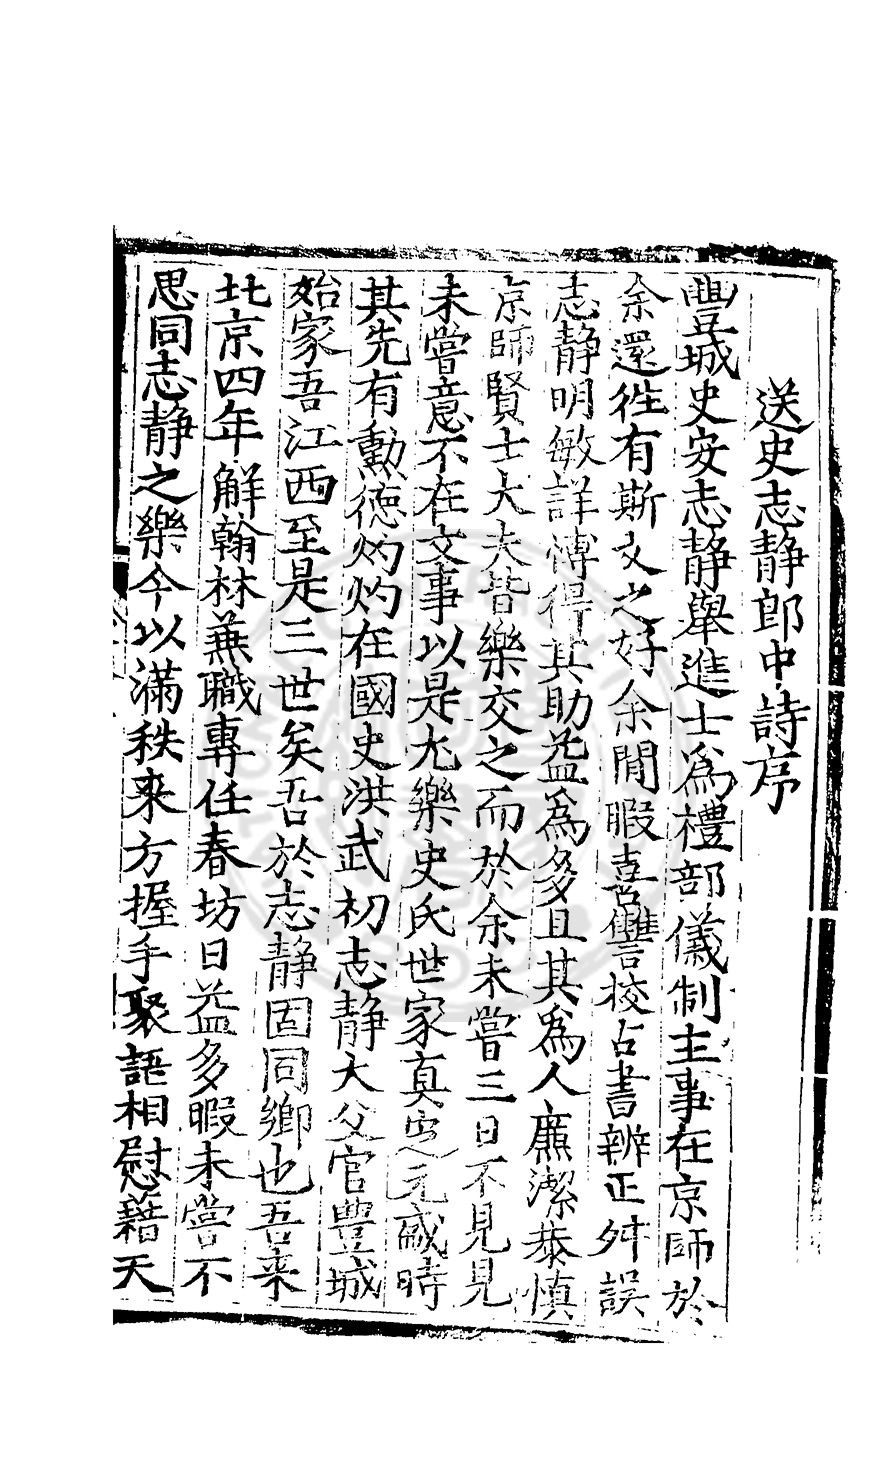 送史志静郎中詩序
豐城史安志静舉進士爲禮部儀制主事在京師於
余還徃有斯文之好余閒暇喜讐校古書辨正舛誤
志静明敏詳慱得其助益爲多且其爲人廉潔恭慎
京師賢士大夫皆樂交之而於余未嘗三日不見見
未嘗意不在文事以是尤樂史氏世家真定元盛時
其先有勳德灼灼在國史洪武初志静大父官豐城
始家吾江西至是三世矣吾於志静固同鄉也吾来
北京四年解翰林兼職專任春坊日益多暇未嘗不
思同志静之樂今以滿秩来方握手聚語相慰藉天